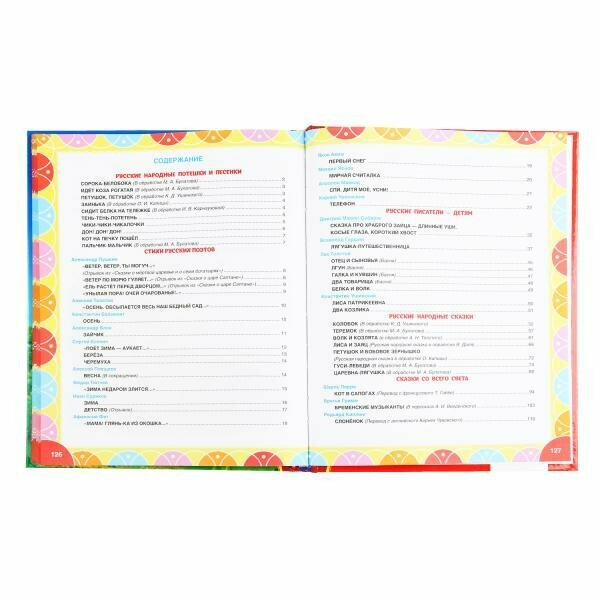 СОДЕРЖАНИЕ
РУССКИЕ НАРОДНЫЕ ПОТЕШКИ И ПЕСЕНКИ
СОРОКА-БЕЛОБОКА (В обработке М. А. Булатова) 2
ИДЁТ КОЗА РОГАТАЯ (В обработке М. А. Булатова) 4
ПЕТУШОК, ПЕТУШОК (В обработке К. Д. Ушинского) 4
ЗАИНЬКА (В обработке О. И. Капицы) 4
СИДИТ БЕЛКА НА ТЕЛЕЖКЕ (В обработке И. В. Карнауховой) 5
ТЕНЬ-ТЕНЬ-ПОТЕТЕНЬ
ЧИКИ-ЧИКИ-ЧИКАЛОЧКИ
ДОН! ДОН! ДОН!
КОТ НА ПЕЧКУ ПОШЁЛ 7
ПАЛЬЧИК-МАЛЬЧИК (В обработке М. А. Булатова) 7
СТИХИ РУССКИХ ПОЭТОВ
Александр Пушкин
«ВЕТЕР, ВЕТЕР, ТЫ МОГУЧ...»
(Отрывок из «Сказки о мёртвой царевне и о семи богатырях») 8
«ВЕТЕР ПО МОРЮ ГУЛЯЕТ...» (Отрывок из «Сказки о царе Салтане») 8
«ЕЛЬ РАСТЁТ ПЕРЕД ДВОРЦОМ...» (Отрывок из «Сказки о царе Салтане») 9
«УНЫЛАЯ ПОРА! ОЧЕЙ ОЧАРОВАНЬЕ!..» 9
Алексей Толстой
«ОСЕНЬ. ОБСЫПАЕТСЯ ВЕСЬ НАШ БЕДНЫЙ САД...» 10
Константин Бальмонт
ОСЕНЬ
Александр Блок
ЗАЙЧИК
Сергей Есенин
«ПОЁТ ЗИМА — АУКАЕТ...» 12
БЕРЁЗА 13
ЧЕРЕМУХА 14
Алексей Плещеев
ВЕСНА (В сокращении)
Фёдор Тютчев
«ЗИМА НЕДАРОМ ЗЛИТСЯ...»
Иван Суриков
ЗИМА 16
ДЕТСТВО (Отрывок) 17
Афанасий Фет
«МАМА! ГЛЯНЬ-КА ИЗ ОКОШКА...» 18
126
Яков Аким
ПЕРВЫЙ СНЕГ 19
Михаил Яснов
МИРНАЯ СЧИТАЛКА 20
Аполлон Майков
СПИ, ДИТЯ МОЁ, УСНИ! 21
Корней Чуковский
ТЕЛЕФОН
РУССКИЕ ПИСАТЕЛИ — ДЕТЯМ
Дмитрий Мамин-Сибиряк
СКАЗКА ПРО ХРАБРОГО ЗАЙЦА — ДЛИННЫЕ УШИ,
КОСЫЕ ГЛАЗА, КОРОТКИЙ ХВОСТ 32
Всеволод Гаршин
ЛЯГУШКА-ПУТЕШЕСТВЕННИЦА 37
Лев Толстой
ОТЕЦ И СЫНОВЬЯ (Басня)
ЛГУН (Басня)
ГАЛКА И КУВШИН (Басня)
ДВА ТОВАРИЩА (Басня)
БЕЛКА И ВОЛК
Константин Ушинский
ЛИСА ПАТРИКЕЕВНА
ДВА КОЗЛИКА
РУССКИЕ НАРОДНЫЕ СКАЗКИ
КОЛОБОК (В обработке К. Д. Ушинского) 52
ТЕРЕМОК (В обработке М. А. Булатова) 57
ВОЛК И КОЗЛЯТА (В обработке А. Н. Толстого) 61
ЛИСА И ЗАЯЦ (Русская народная сказка в обработке В. Даля)
ПЕТУШОК И БОБОВОЕ ЗЕРНЫШКО
(Русская народная сказка в обработке О. Капицы) 72
ГУСИ-ЛЕБЕДИ (В обработке М. А. Булатова) 74
ЦАРЕВНА-ЛЯГУШКА (В обработке М. А. Булатова)
СКАЗКИ СО ВСЕГО СВЕТА
Шарль Перро
КОТ В САПОГАХ (Перевод с французского Т. Габбе) 94
Братья Гримм
БРЕМЕНСКИЕ МУЗЫКАНТЫ (В пересказе А. И. Введенского)
Редьярд Киплинг
СЛОНЁНОК (Перевод с английского Корнея Чуковского)
127